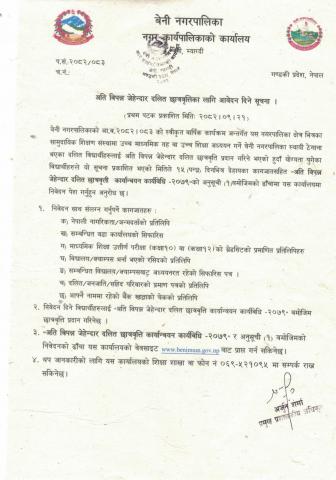 बेनी नगरपालिका
नगर कार्यपालिकाको कार्यालय
म्याग्दी
प.सं. २०८२/०८३
च.नं.
गण्डकी प्रदेश, नेपाल
अति विपन्न जेहेन्दार दलित छात्रवृत्तिका लागि आवेदन दिने सूचना ।
(प्रथम पटक प्रकाशित मितिः २०८२।०९।२१)
बेनी नगरपालिकाको आ.ब.२०८२।०८३ को स्वीकृत वार्षिक कार्यक्रम अन्तर्गत यस नगरपालिका क्षेत्र भित्रका
सामुदायिक शिक्षण संस्थामा उच्च माध्यमिक तह वा उच्च शिक्षा अध्ययन गर्ने बेनी नगरपालिका स्थायी ठेगाना
भएका दलित विद्यार्थीहरुलाई अति विपन्न जेहेन्दार दलित छात्रवृत्ति प्रदान गरिने भएको हुदाँ योग्यता पुगेका
विद्यार्थीहरुले यो सूचना प्रकाशित भएको मितिले १५ दिनभित्र देहायका कागजातसहित -अति विपन्न
जेहेन्दार दलित छात्रवृत्ती कार्यान्वयन कार्यविधि -२०७९-को अनुसूची (१)बमोजिमको ढाँचामा यस कार्यालयमा
निवेदन पेश गर्नुहुन अनुरोध छ।
१. निवेदन साथ संलग्न गर्नुपर्ने कागजातहरु:
क. नेपाली नागरिकता/जन्मदर्ताको प्रतिलिपि
ख. सम्बन्धित वडा कार्यालयको सिफारिस
ग. माध्यमिक शिक्षा उत्तीर्ण परीक्षा (कक्षा१०) वा (कक्षा१२)को ग्रेडसिटको प्रमाणित प्रतिलिपिहरु
घ. विद्यालय/क्याम्पस भर्ना भएको रसिदको प्रतिलिपि
ङ. सम्बन्धित विद्यालय/क्याम्पसबाट अध्ययनरत रहेको सिफारिस पत्र ।
च. दलित/जनजाति/सहिद परिवारको प्रमाण पत्रको प्रतिलिपि
छ. आफ्नो नाममा रहेको बैंक खाताको चेकको प्रतिलिपि
२. निवेदन दिने विद्यार्थीहरुलाई -अति विपन्न जेहेन्दार दलित छात्रवृत्ति कार्यान्वयन कार्यविधि -२०७९- बमोजिम
छात्रवृत्ति प्रदान गरिनेछ ।
३. -अति विपन्न जेहेन्दार दलित छात्रवृत्ति कार्यान्वयन कार्यविधि -२०७९- र अनुसूची (१) बमोजिमको
निवेदनको ढाँचा यस कार्यालयको वेबसाइट www.benimun.gov.np बाट प्राप्त गर्न सकिनेछ।
४. थप जानकारीको लागि यस कार्यालयको शिक्षा शाखा वा फोन नं ०६९-५२१०९५ मा सम्पर्क राख्न
सकिनेछ।
अर्जुन शर्मा
प्रमुख प्रशासकीय अधिकृत